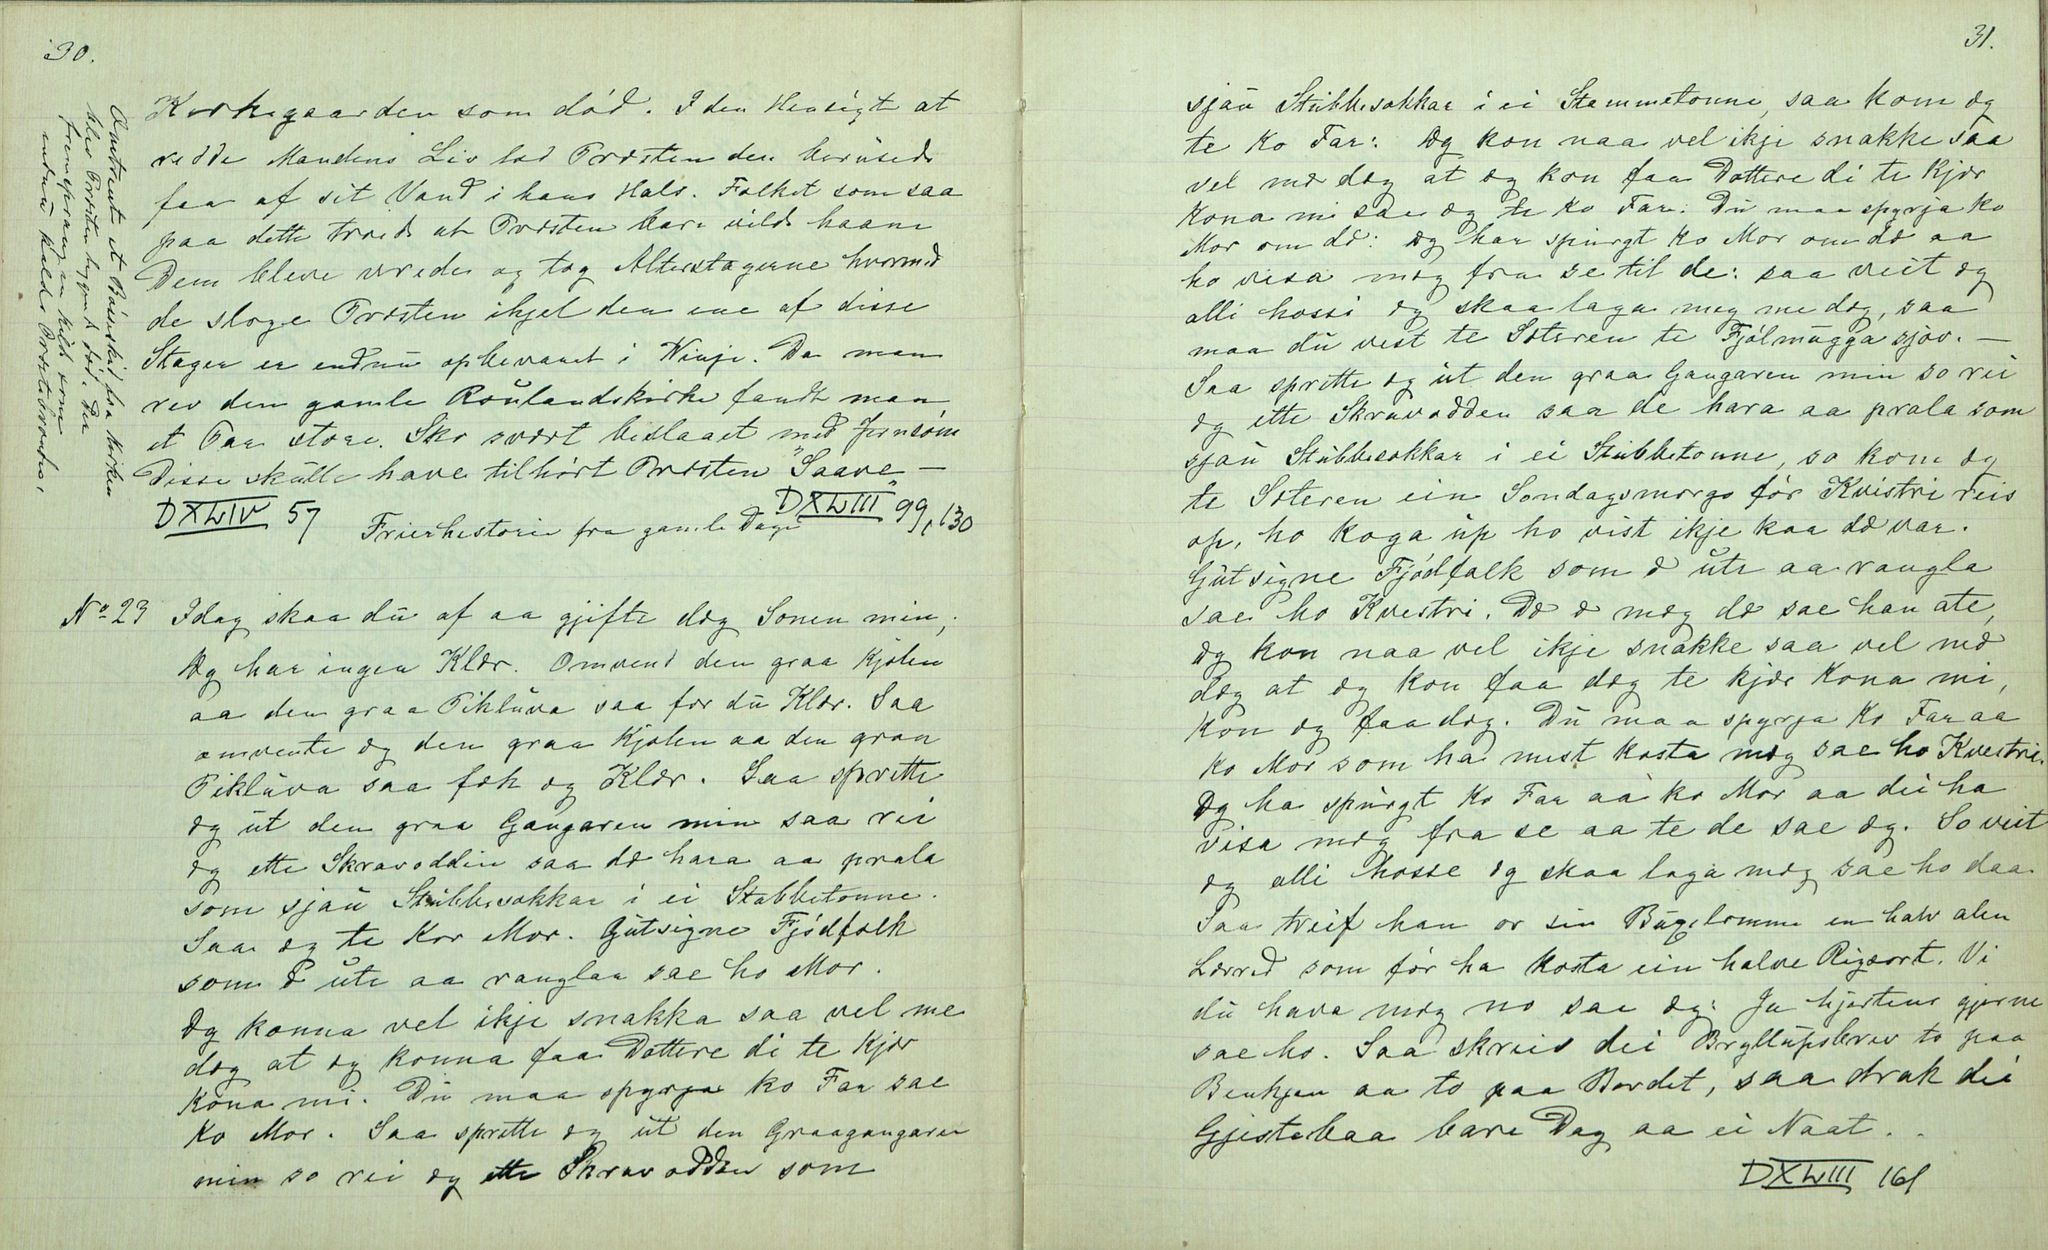 30.
Kirkegaarden som død. I den Hensigt at
redde Mandens Liv lod Præsten den berusede
faa af sit Vand i hans Hals. Folket som saa
paa dette troede at Præsten bare vilde haane
Dem bleve vrede og tog Alterstagerne hvormed
de sloge Præsten ihjel den ene af disse
Stager er endnu opbevaret i Vinje. Da man
rev den gamle Raulandskirke fandt man
et Par store Sko svært beslaaet med Jernsøm
Disse skulle have tilhørt Præsten "Saave" —
DXLIV 57
DXLIII 99, 130
Omtrent et Bøsseskud fra Kirken
blev Præsten lagende død. Der
fremsprang en kild som
endnu kaldes Præstebrønden.
Frierhistorie fra gamle Dage
No 23 Idag skaa du af aa gjifte dæg Sonen min,
Æg har ingen Klær. Omvend den graa Kjolen
aa den graa Pikluva saa fær du Klær. Saa
omvente æg den graa Kjolen aa den graa
Pikluva saa fæk æg Klær. Saa sprette
æg ut den graa Gangaren min saa rei
æg ette Skravoddin saa dæ hara aa prala
som sjau Stubbesokkar i ei Stabbetonne.
Saa æg te Kor Mor. Gutsigne Fjødfolk
som æ ute aa ranglaa sae ho Mor.
Æg konna vel ikje snakka saa vel me
dæg at æg konna faa Dottere di te Kjær
Kona mi. Du maa spyrja ko Far sae
Ko Mor. Saa sprette æg ut den Graagangaren
min so rei æg ette Skravodden som
31.
sjau Stubbesokkar i ei Stammetonne, saa kom æg
te Ko Far: Æg kon naa vel ikje snakke saa
vel mæ dæg at æg kon faa Dottere di te Kjær
Kona mi sae æg te Ko Far: Du maa spyrja ko
Mor om dæ: æg har spurgt ko Mor om dæ aa
ho visa mæg fra se til de: saa veit æg
alli hossi æg skaa laga mæg me dæg, saa
maa du vest te Sæteren te Fjølmugga sjøv. —
Saa sprette æg ut den graa Gangaren min so rei
æg ette Skravodden saa de hara aa prala som
sjau Stubbesokkar i ei Stubbetonne, so kom æg
te Sæteren ein Sondagsmorgo før Kvistri reis
op, ho koga up ho vist ikje kaa dæ var.
Gutsigne Fjødfolk som æ ute aa rangla
sae ho Kvestri. Dæ æ mæg dæ sae han ate,
Æg kon naa vel ikje snakke saa vel mæ
dæg at æg kon faa dæg te kjær Kona mi,
kon æg faa dæg. Du maa spyrja Ko Far aa
ko Mor som ha mest kosta mæg sae ho Kvestri.
Æg ha spurgt Ko Far aa ko Mor aa dei ha
visa mæg fra se aa te de sae æg. So veit
æg alli hosse æg skaa laga mæg sae ho daa.
Saa treif han or sin Buxelomme en halv alen
Lærred som før ha kosta ein halve Rigsort. Vi
du hava mæg no sae æg: Ja hjertens gjerne
sae ho. Saa skreiv dei Bryllupsbrev to paa
Benkjen aa to paa Bordet, saa drak dei
Gjestebaa bare Dag aa ei Naat..
DXLIII 161